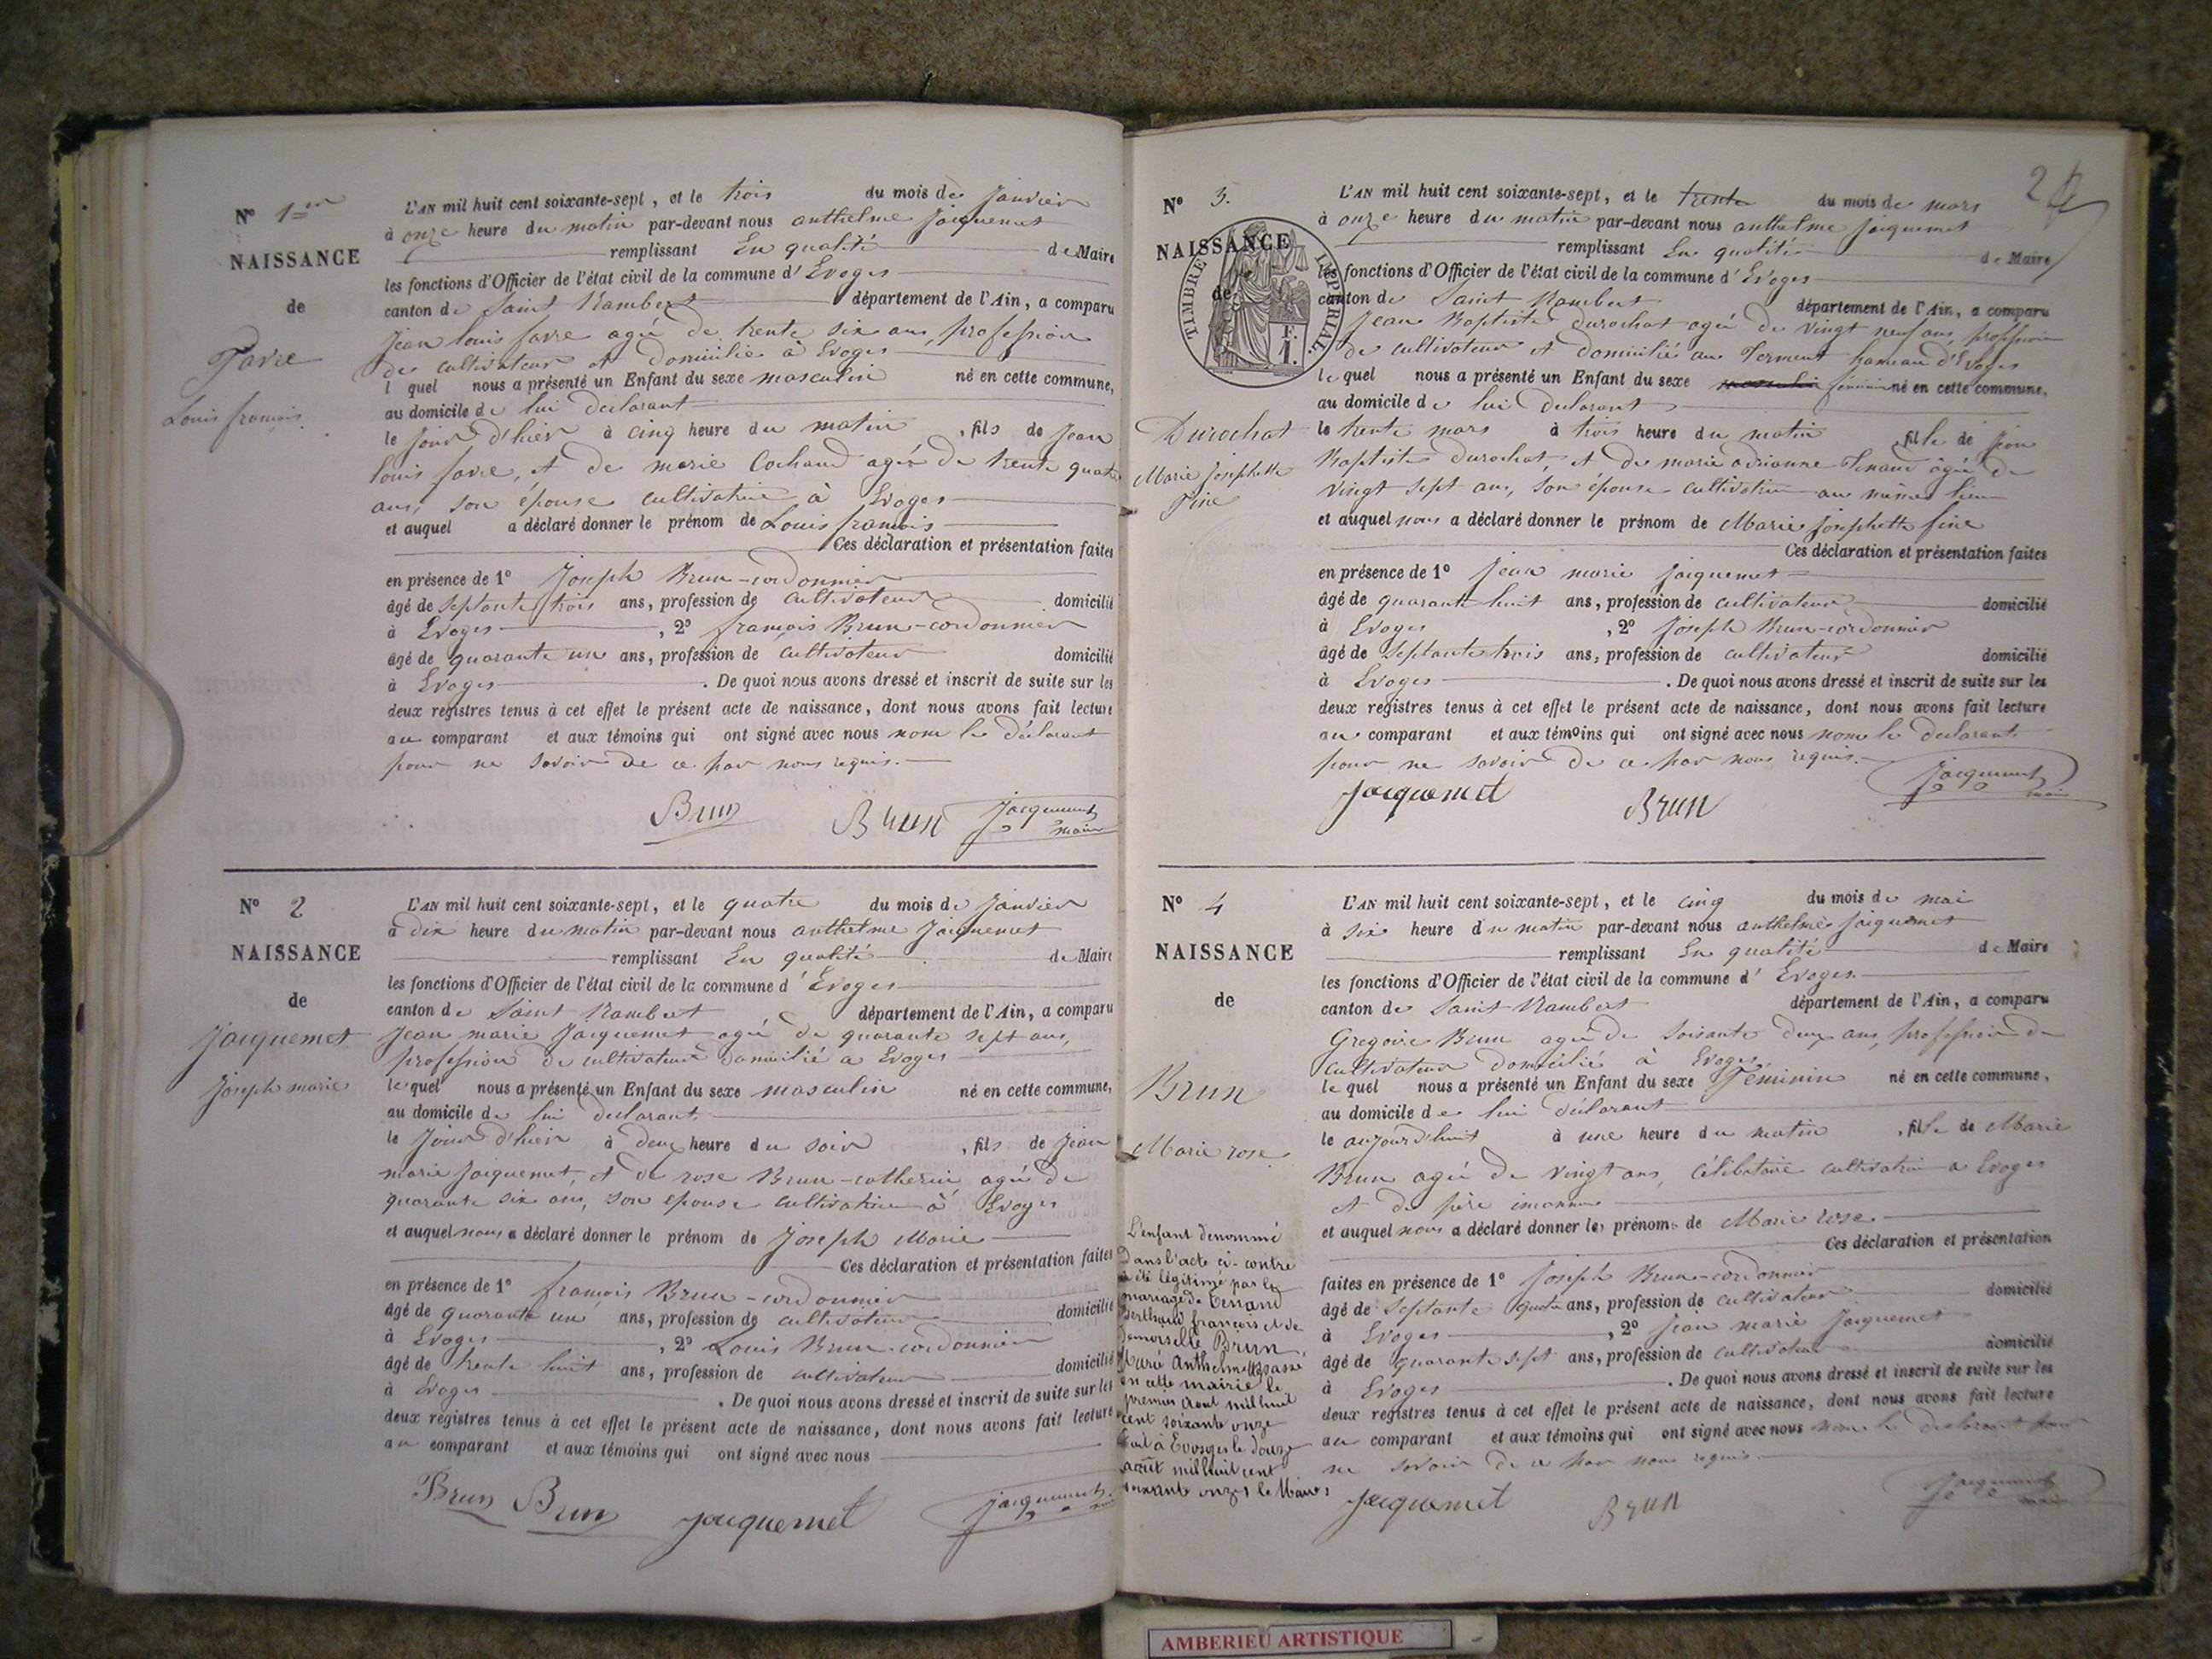 N° 1er
NAISSANCE
de
Favre
Louis françois
L'AN mil huit cent soixante-sept, et le trois du mois de janvier
à onze heure du matin par-devant nous anthelme Jacquemet
remplissant En qualité de Maire
les fonctions d'Officier de l'état civil de la commune d'Evoges
canton de Saint Rambert département de l'Ain, a comparu
Jean louis favre agé de trente six ans, profession
de cultivateur et domicilié à Evoges
l quel nous a présenté un Enfant du sexe masculin né en cette commune,
au domicile de lui declarant
le jour d'hier à cinq heure du matin, fils de Jean
louis favre, et de marie Cochand agée de trente quatre
ans, son épouse cultivatrice à Evoges
et auquel a déclaré donner le prénom de Louis françois
Ces déclaration et présentation faites
en présence de 1° Joseph Brun-cordonnier
âgé de septante trois ans, profession de cultivateur domicilié
à Evoges, 2° françois Brun-cordonnier
âgé de quarante un ans, profession de cultivateur domicilié
à Evoges. De quoi nous avons dressé et inscrit de suite sur les
deux registres tenus à cet effet le présent acte de naissance, dont nous avons fait lecture
au comparant et aux témoins qui ont signé avec nous non le déclarant
pour ne savoir de ce par nous requis.
Brun Brun Jacquemet maire
N° 2
NAISSANCE
de
Jacquemet
Joseph marie
L'AN mil huit cent soixante-sept, et le quatre du mois de janvier
à dix heure du matin par-devant nous anthelme Jacquemet
remplissant En qualité de Maire
les fonctions d'Officier de l'état civil de la commune d'Evoges
canton de Saint Rambert département de l'Ain, a comparu
Jean marie Jacquemet agé de quarante sept ans,
profession de cultivateur domicilié a Evoges
le quel nous a présenté un Enfant du sexe masculin né en cette commune,
au domicile de lui declarant
le jour d'hier à deux heure du soir, fils de Jean
marie Jacquemet, et de rose Brun-catherin agée de
quarante six ans, son epouse cultivatrice à Evoges
et auquel nous a déclaré donner le prénom de Joseph Marie
Ces déclaration et présentation faites
en présence de 1° françois Brun-cordonnier
âgé de quarante un ans, profession de cultivateur domicilié
à Evoges, 2° Louis Brun-cordonnier
âgé de trente huit ans, profession de cultivateur domicilié
à Evoges. De quoi nous avons dressé et inscrit de suite sur les
deux registres tenus à cet effet le présent acte de naissance, dont nous avons fait lecture
au comparant et aux témoins qui ont signé avec nous
Brun Brun Jacquemet Jacquemet
2
N° 3.
NAISSANCE
de
TIMBRE IMPERIAL
F.
1.
Durochat
Marie Josephette
Fine
L'AN mil huit cent soixante-sept, et le trente du mois de mars
à onze heure du matin par-devant nous anthelme Jacquemet
remplissant En qualité de Maire
les fonctions d'Officier de l'état civil de la commune d'Evoges
canton de Saint Rambert département de l'Ain, a comparu
Jean Baptiste Durochat agé de vingt neuf ans, profession
de cultivateur et domicilié au hameau d'Evoges
le quel nous a présenté un Enfant du sexe masculin féminin né en cette commune,
au domicile de lui declarant
le trente mars à trois heure du matin, fille de Jean
Baptiste Durochat, et de marie adrianne Tenand âgée de
vingt sept ans, son épouse cultivatrice au même lieu
et auquel nous a déclaré donner le prénom de Marie Josephette fine
Ces déclaration et présentation faites
en présence de 1° Jean marie Jacquemet
âgé de quarante huit ans, profession de cultivateur domicilié
à Evoges, 2° Joseph Brun-cordonnier
âgé de septante trois ans, profession de cultivateur domicilié
à Evoges. De quoi nous avons dressé et inscrit de suite sur les
deux registres tenus à cet effet le présent acte de naissance, dont nous avons fait lecture
au comparant et aux témoins qui ont signé avec nous non le declarant
pour ne savoir de ce par nous requis.
Jacquemet Brun Jacquemet maire
N° 4
NAISSANCE
de
Brun
Marie rose
L'enfant denommé
dans l'acte ci-contre
a été légitimé par le
mariage de Tenand
Berthaud françois et de
demoiselle Brun
Marie Anthelmette passé
en cette mairie le
premier Aout mil huit
cent soixante onze
fait à Evosges le douze
août mil huit cent
soixante onze le Maire
L'AN mil huit cent soixante-sept, et le cinq du mois de mai
à six heure du matin par-devant nous anthelme Jacquemet
remplissant En qualité de Maire
les fonctions d'Officier de l'état civil de la commune d'Evoges
canton de Saint Rambert département de l'Ain, a comparu
Gregoire Brun agé de soixante deux ans, profession de
cultivateur domicilié à Evoges
le quel nous a présenté un Enfant du sexe féminin né en cette commune,
au domicile de lui déclarant
le aujourd'huit à une heure du matin, fille de Marie
Brun agée de vingt ans, célibataire cultivatrice a Evoges
et de père inconnu
et auquel nous a déclaré donner les prénoms de Marie rose
Ces déclaration et présentation
faites en présence de 1° Joseph Brun-cordonnier domicilié
âgé de septante quatre ans, profession de cultivateur
à Evoges, 2° Jean marie Jacquemet domicilié
âgé de quarante sept ans, profession de cultivateur
à Evoges. De quoi nous avons dressé et inscrit de suite sur les
deux registres tenus à cet effet le présent acte de naissance, dont nous avons fait lecture
au comparant et aux témoins qui ont signé avec nous non le declarant pour
ne savoir de ce par nous requis
Jacquemet Brun Jacquemet maire
AMBERIEU ARTISTIQUE